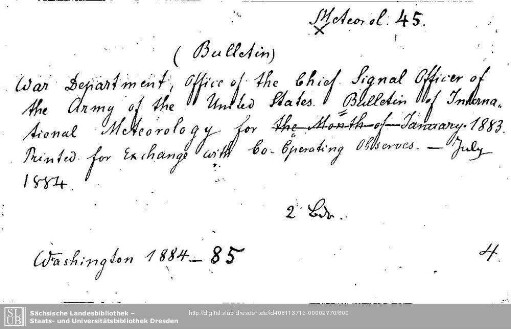 Meteorol. 45.
(Bulletin)
War Department, Office of the Chief Signal Officer of
the Army of the United States. Bulletin of Interna-
tional Meteorology for the Month of January 1883.
Printed for Exchange with Co-Operating Observes. — July
1884.
2 Bde.
Washington 1884–85
4.
SLUB
Sächsische Landesbibliothek –
Staats- und Universitätsbibliothek Dresden